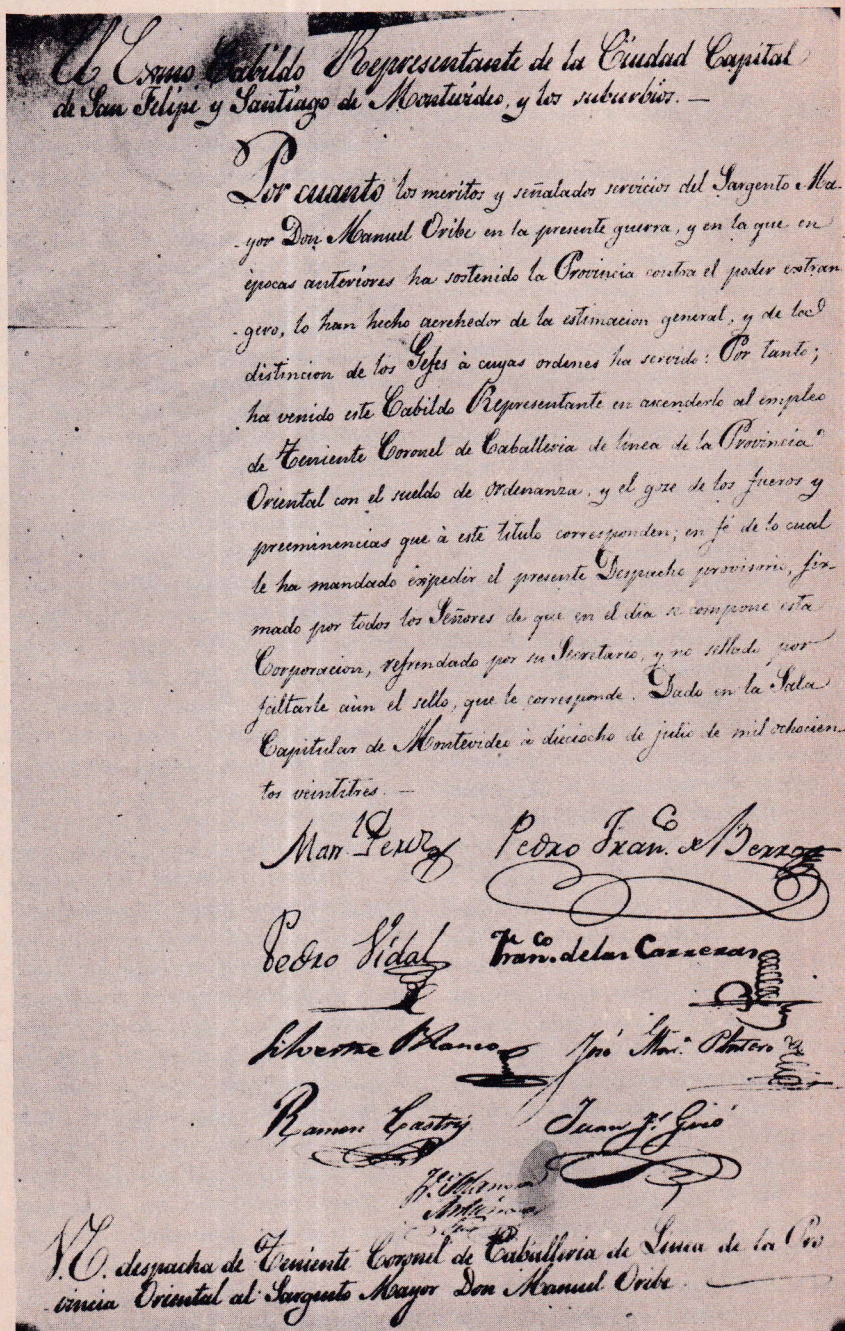 El Exmo Cabildo Representante de la Ciudad Capital
de San Felipe y Santiago de Montevideo, y los suburbios. —
Por cuanto los meritos y señalados servicios del Sargento Ma-
-yor Don Manuel Oribe en la presente guerra, y en la que en
épocas anteriores ha sostenido la Provincia contra el poder extran
-gero, lo han hecho acrehedor de la estimacion general, y de la
distincion de los Gefes à cuyas ordenes ha servido: Por tanto;
ha venido este Cabildo Representante en ascenderlo al empleo
de Teniente Coronel de Caballeria de linea de la Provincia
Oriental con el sueldo de ordenanza, y el goze de los fueros y
preeminencias que à este titulo corresponden; en fé de lo cual
le ha mandado expedir el presente Despacho provisorio, fir-
mado por todos los Señores de que en el dia se compone esta
Corporacion, refrendado por su Secretario, y no sellado por
faltarle aùn el sello, que le corresponde. Dado en la Sala
Capitular de Montevideo à dieciocho de julio de mil ochocien-
tos veintitres. —
Man.l Perez Pedro Fran.co de Berro
Pedro Vidal Fran.co de las Carreras
Silvestre Blanco José Mar.a Platero
Ramon Castriz Juan F.co Giró
V.E. despacha de Teniente Coronel de Caballeria de Linea de la Pro
-vincia Oriental al Sargento Mayor Don Manuel Oribe. —